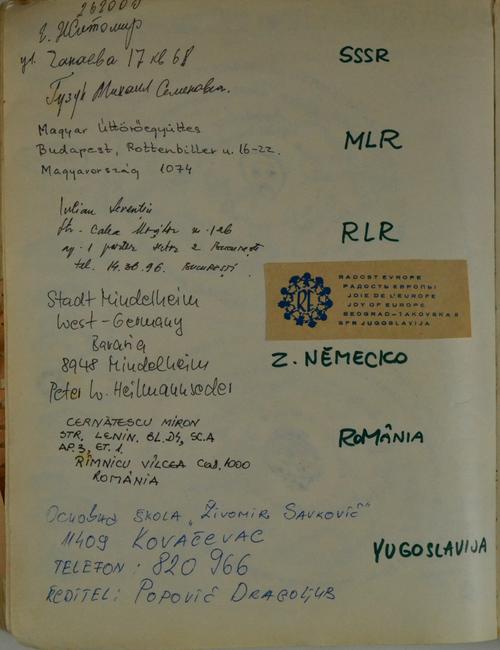 262000
г. Житомир
ул. Чапаева 17 кв 68
SSSR
Гузь Михаил Семенович.
Magyar Úttörőegyüttes
MLR
Budapest, Rottenbiller u. 16-22.
Magyarország 1074
Iulian
Str. Calea Moșilor nr. 126
RLR
ap. 1 parter 2 București
tel. 14.36.96. București
RADOST EVROPE
РАДОСТЬ ЕВРОПЫ
JOIE DE L'EUROPE
JOY OF EUROPE
BEOGRAD-TAKOVSKA 8
SFR JUGOSLAVIJA
RE
Stadt Mindelheim
West-Germany
Bavaria
8948 Mindelheim
Z. NĚMECKO
Peter W. Heilmannseder
CERNĂTESCU MIRON
STR. LENIN. BL.D4, SC.A
ROMÂNIA
AP.3, ET.1.
RÎMNICU VÎLCEA Cod.1000
ROMÂNIA
Основна ŠKOLA „ŽIVOMIR SAVKOVIČ"
11409 KOVAČEVAC
YUGOSLAVIJA
TELEFON: 820 966
ŘEDITEL: POPOVIČ DRAGOLJUB